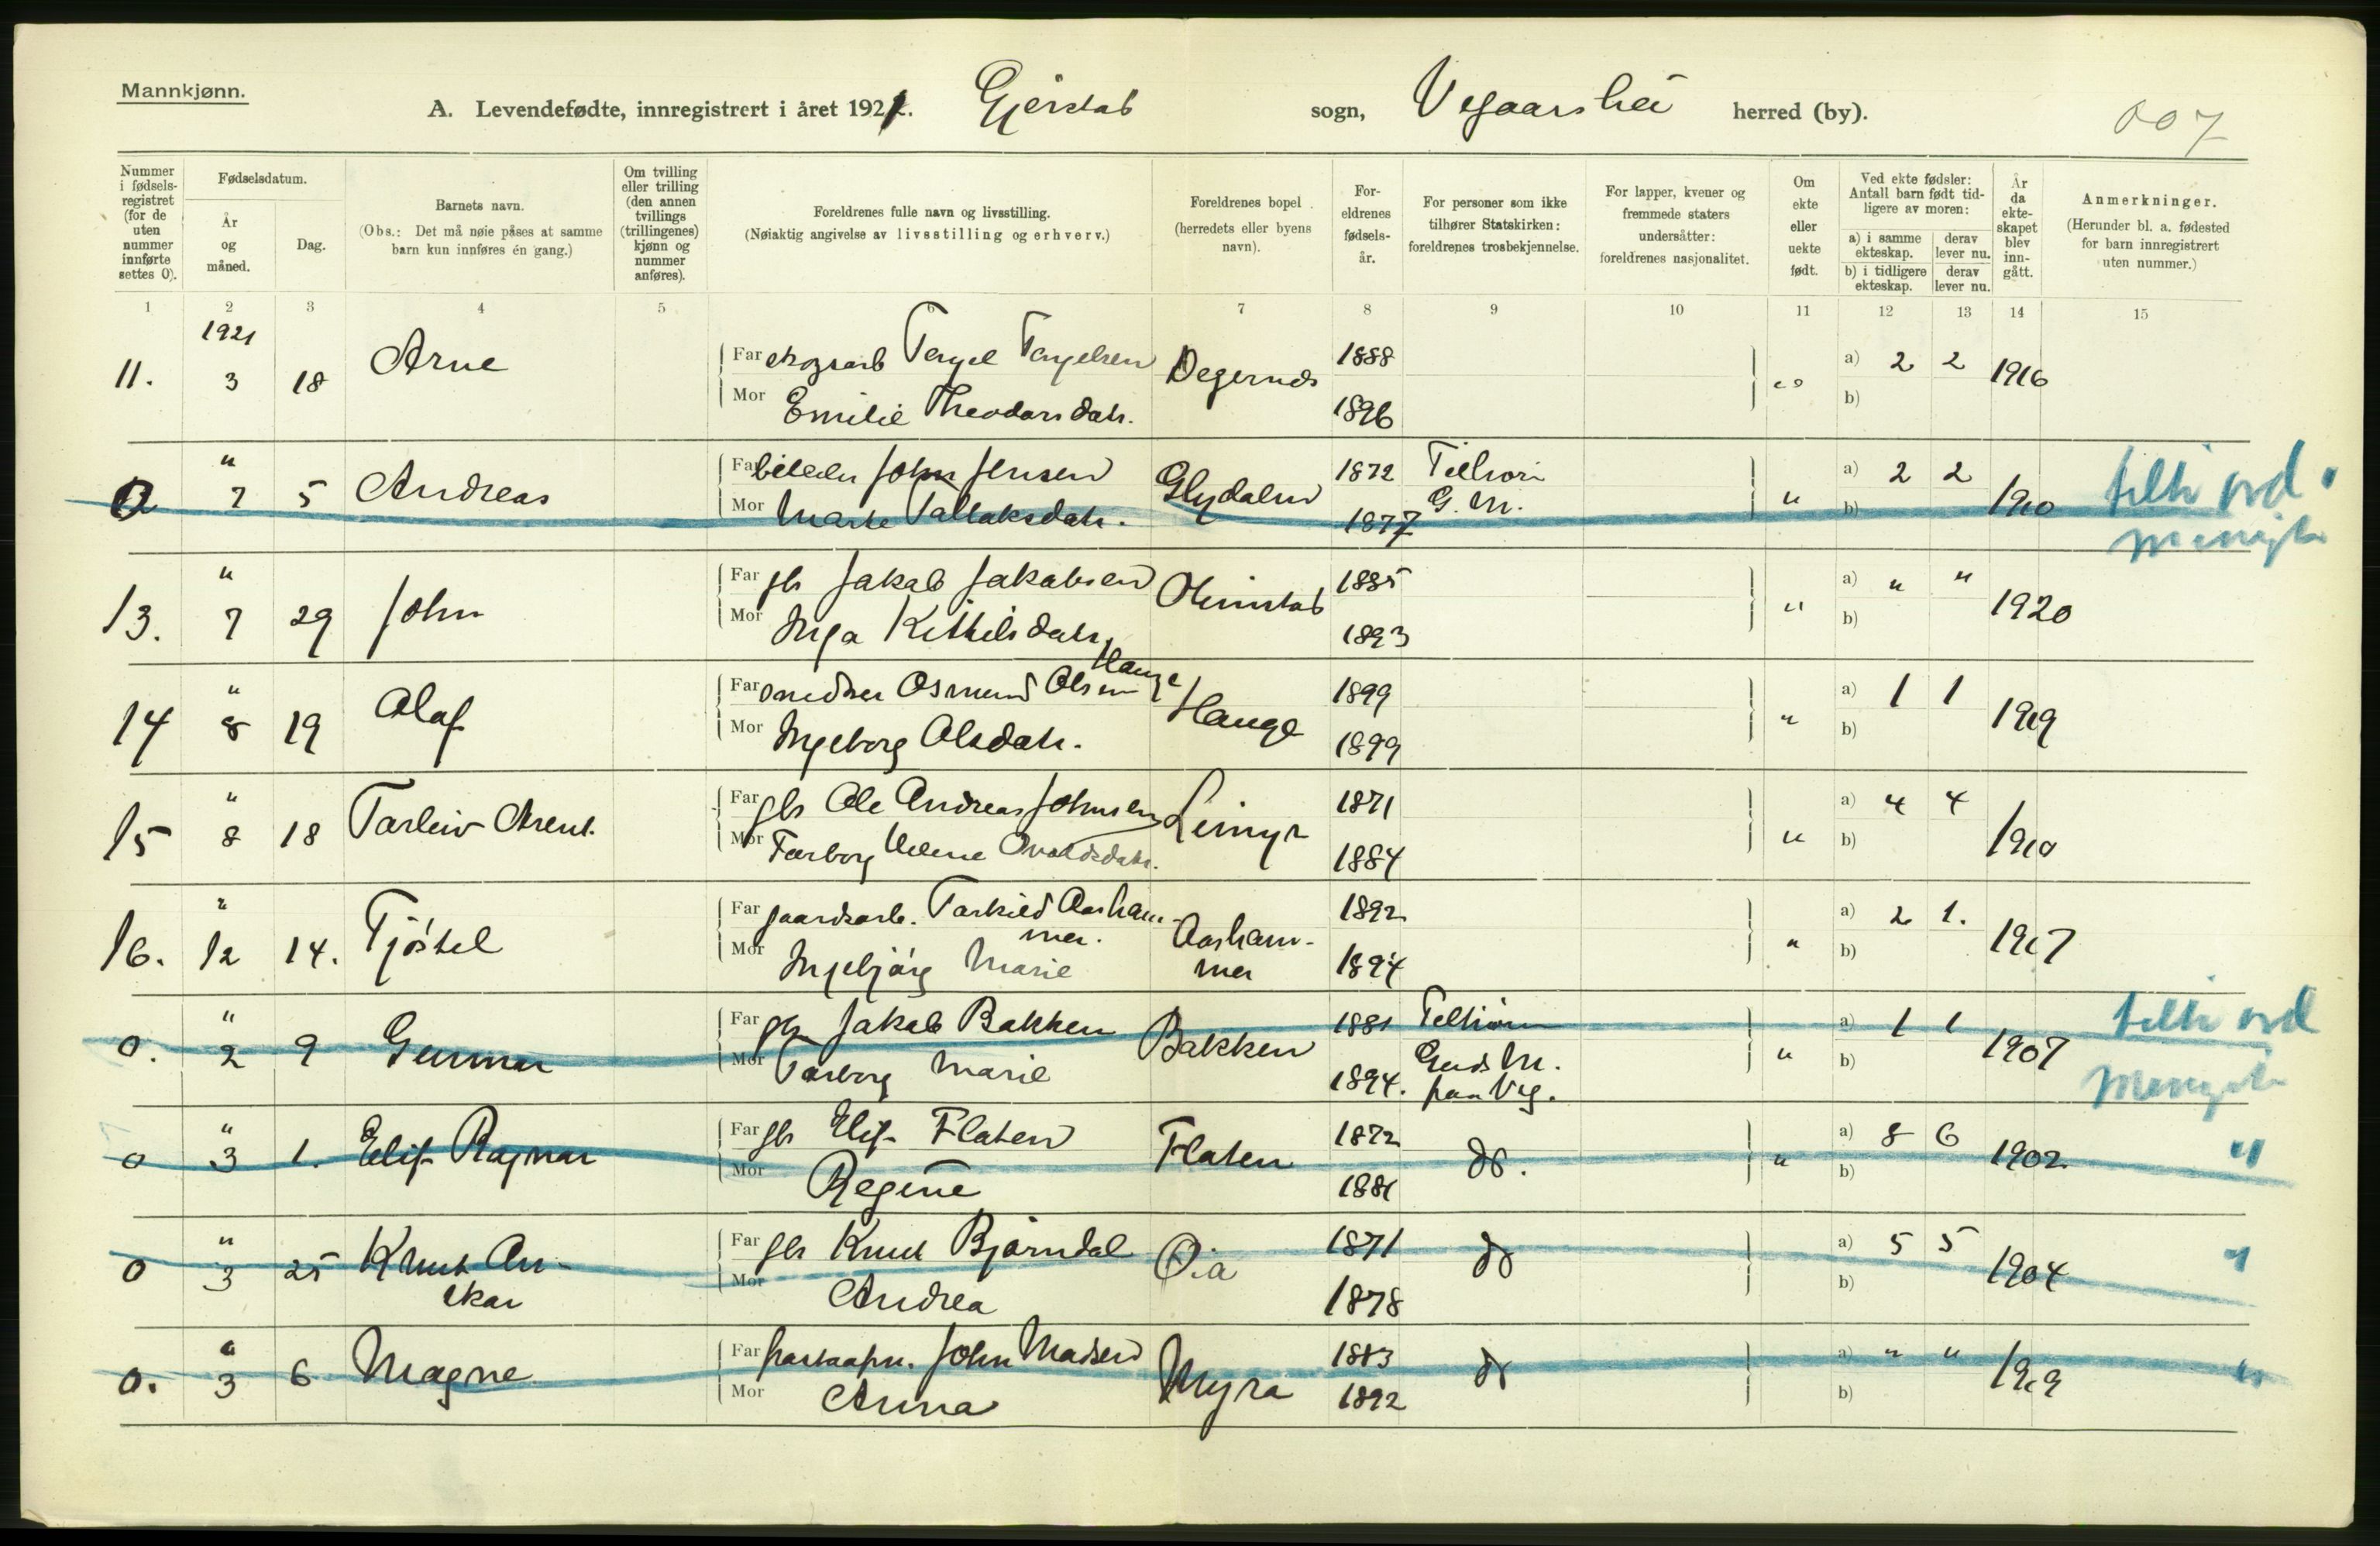 Mannkjønn.
A. Levendefødte, innregistrert i året 1921. Gjerstad sogn, Vegaarshei herred (by).
007
Nummer i fødselsregistret (for de uten nummer innførte settes 0).
Fødselsdatum.
År og måned.
Dag.
Barnets navn.
(Obs.: Det må nøie påses at samme barn kun innføres én gang.)
Om tvilling eller trilling (den annen tvillings (trillingenes) kjønn og nummer anføres).
Foreldrenes fulle navn og livsstilling.
(Nøiaktig angivelse av livsstilling og erhverv.)
Foreldrenes bopel (herredets eller byens navn).
Foreldrenes fødselsår.
For personer som ikke tilhører Statskirken: foreldrenes trosbekjennelse.
For lapper, kvener og fremmede staters undersåtter: foreldrenes nasjonalitet.
Om ekte eller uekte født.
Ved ekte fødsler: Antall barn født tidligere av moren:
a) i samme ekteskap. derav lever nu.
b) i tidligere ekteskap. derav lever nu.
År da ekteskapet blev inngått.
Anmerkninger.
(Herunder bl. a. fødested for barn innregistrert uten nummer.)
1 2 3 4 5 6 7 8 9 10 11 12 13 14 15
1921
11. 3 18 Arne Far skogsarb Terjel Terjelsen Degernes 1888 a) 2 2 1916
Mor Emilie Theodorsdatr. 1896 b)
" 7 5 Andreas Far John Jensen Glydalen 1872 a) 2 2 1910
Mor Marte Tallaksdatr. 1877 G. M. " b)
13. " 7 29 John Far gbr Jakob Jakobsen 1885 " a) " " 1920
Mor Inga Kittilsdatr. 1893 b)
14 " 8 19 Olaf Far Osmund Olsen Hauge Hauge 1899 " a) 1 1 1919
Mor Ingeborg Olsdatr. 1899 b)
15 " 8 18 Tarleiv Arent. Far gbr Ole Andreas Johnsen Limyr 1871 " a) 4 4 1910
Mor Torborg Helene 1884 b)
16. " 12 14. Tjøstel Far gaardsarb. Torkild Aashammer. Aashammer 1892 " a) 2 1. 1917
Mor Ingebjørg Marie 1894 b)
0. " 2 9 Gunnar Far gbr Jakob Bakken Bakken 1881 " a) 1 1 1907
Mor Torborg Marie 1894. Guds M. paa Veg. b)
0 " 3 1. Elif Ragnar Far gbr Elif Flaten Flaten 1872 do. " a) 8 6 1902 "
Mor Regine 1881 b)
0 " 3 25 Knut Anskar Far gbr Knut Bjørndal Øia 1871 do a) 5 5 1904 "
Mor Andrea 1878 b)
0. " 3 6 Magne Far John Madsen Myra 1883 do a) " " 1919 "
Mor Anna 1892 b)